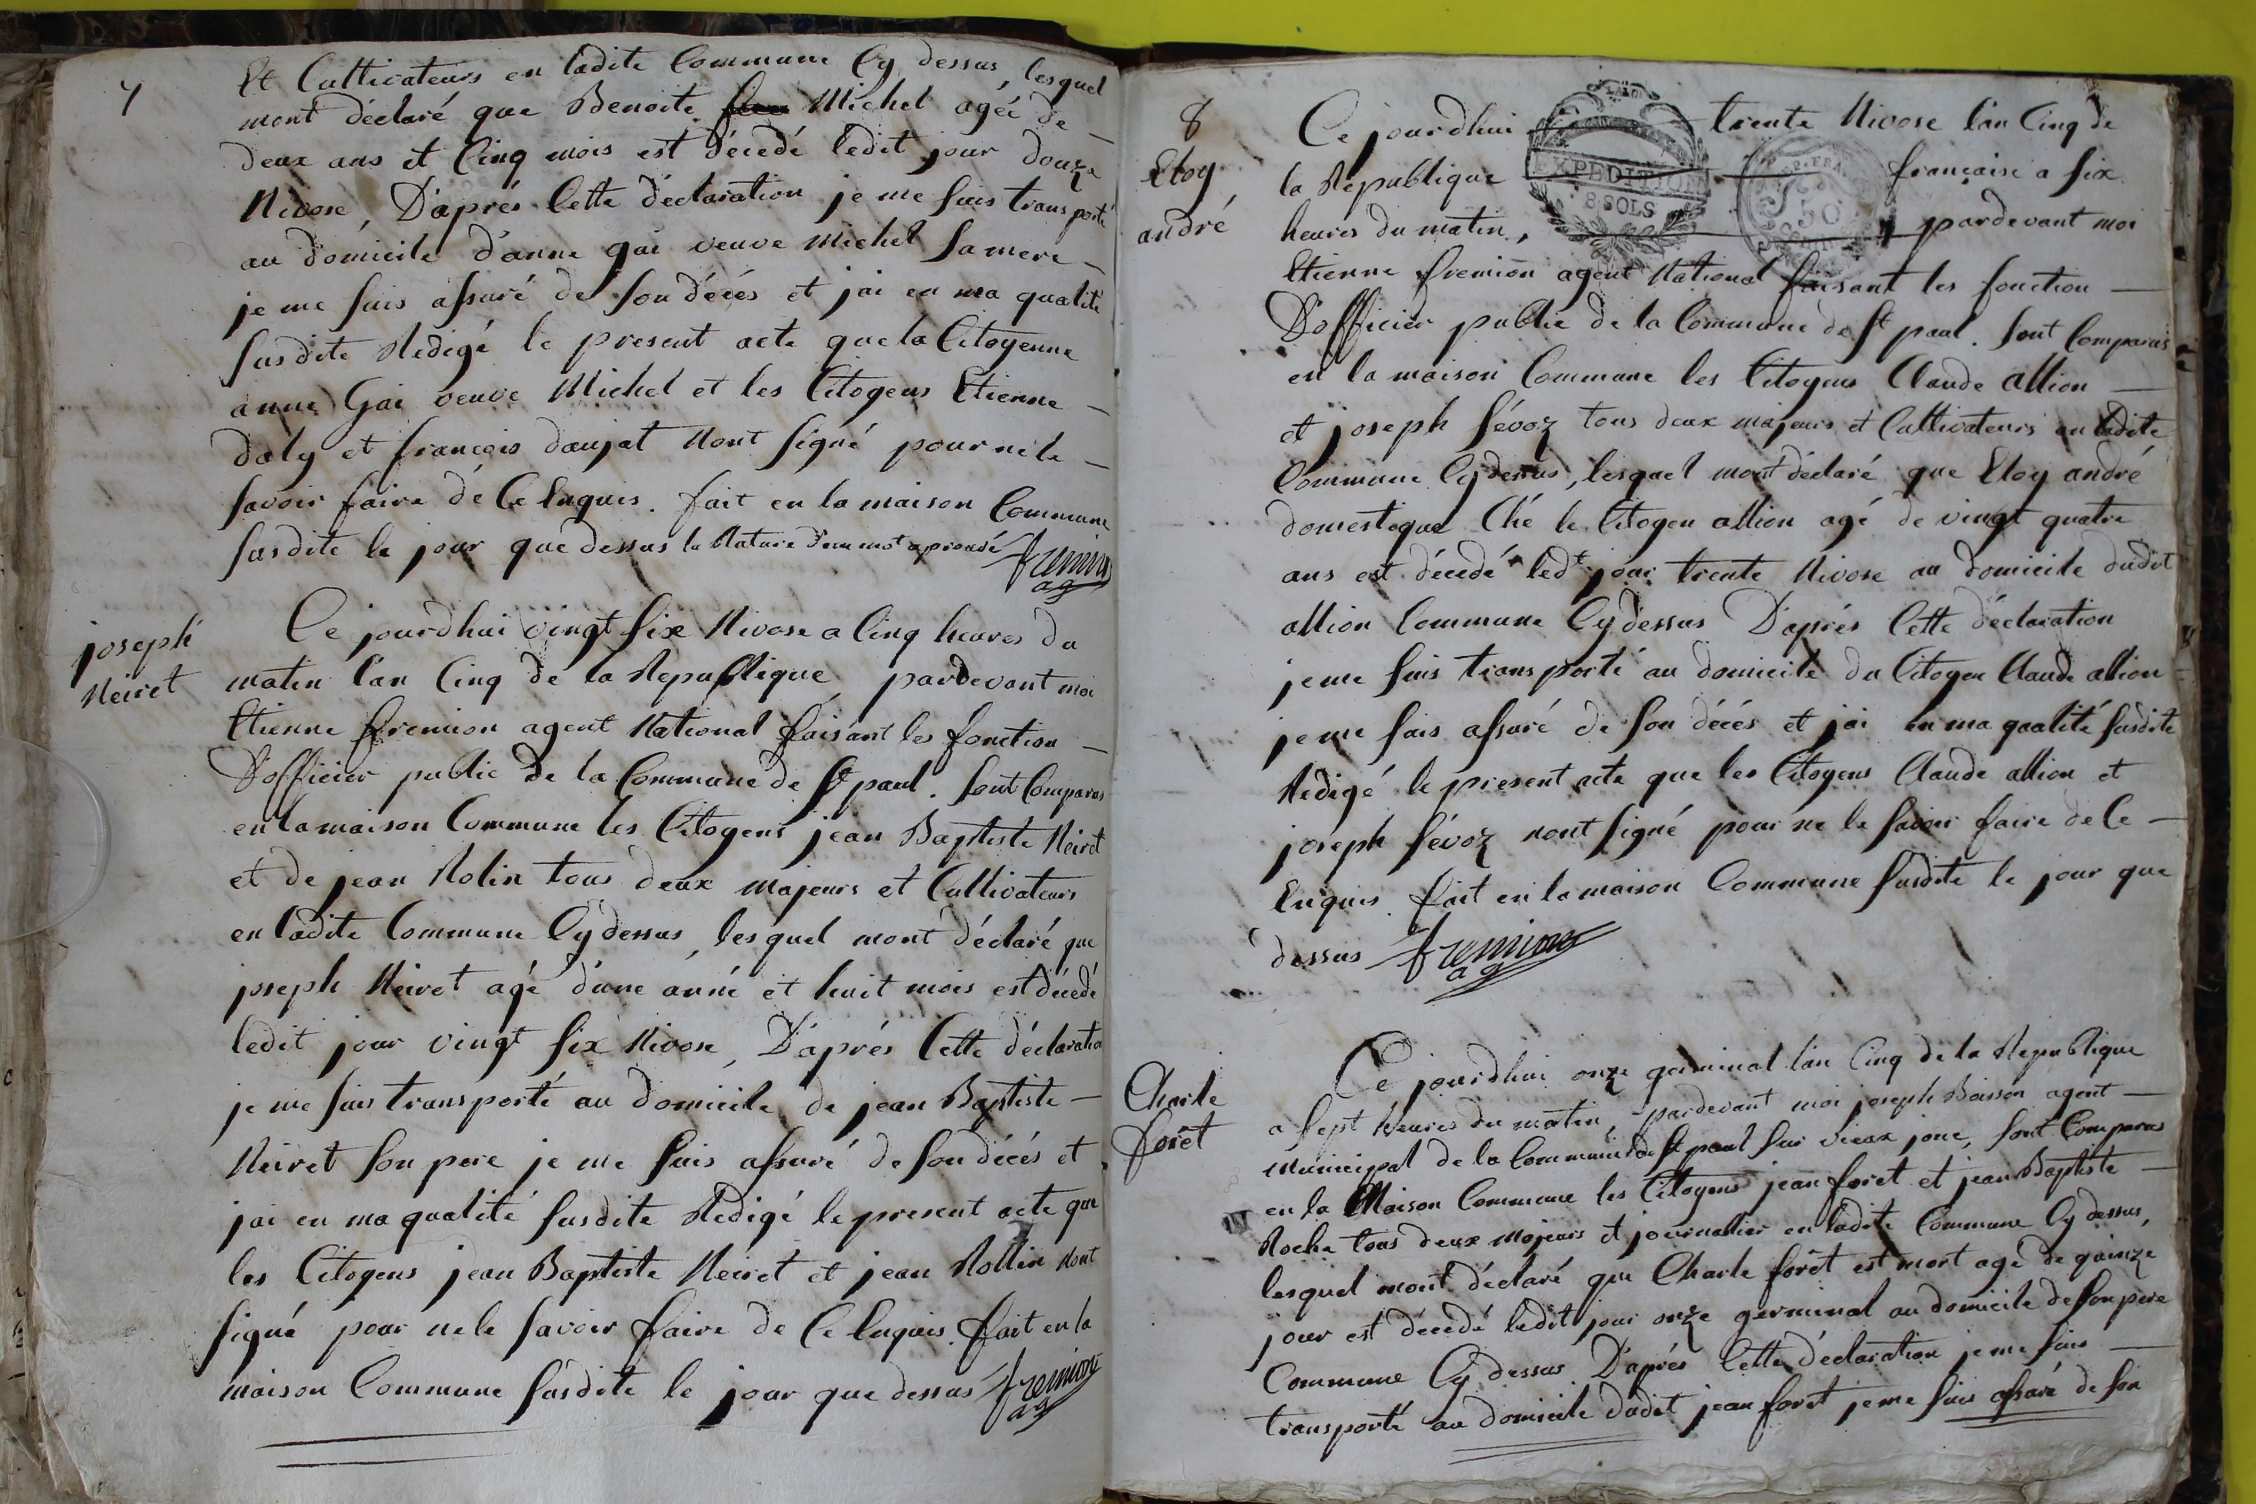 7
Et Cultivateurs en ladite Commune Cy dessus, lesquel
mont déclaré que Benoite Michel agée de
deux ans et Cinq mois est décedé ledit jour douze
Nivose, D'après Cette déclaration je me suis transporté
au domicile d'anne gai veuve Michel sa mere
je me suis assuré de son décés et jai en ma qualité
susdite Rédigé le present acte que la Citoyenne
anne Gai veuve Michel et les Citoyens Etienne
daly et françois daujat nont signé pour ne le
savoir faire dé Ce Enquis. fait en la maison Commune
susdite le jour que dessus la Rature d'un mot aprouvé fremion
ag
joseph
Neiret
Ce jourdhui vingt six Nivose a Cinq heures du
matin l'an Cinq de la Republique pardevant moi
Etienne fremion agent National faisant les fonction
D'officier public de la Commune de St paul. sont Comparus
en la maison Commune les Citoyens jean Baptiste Neiret
et de jean Rolin tous deux majeurs et Cultivateurs
en ladite Commune Cy dessus, lesquel mont déclaré que
joseph Neiret agé d'une anné et huit mois est décedé
ledit jour vingt six Nivose, D'après Cette déclaratio
je me suis transporté au domicile de jean Baptiste
Neiret son pere je me suis assuré de son décés et
jai en ma qualité susdite Rédigé le present acte que
les Citoyens jean Baptiste Neiret et jean Rollin nont
signé pour ne le savoir faire de Ce Enquis. fait en la
maison Commune susdite le jour que dessus fremion
ag
8
Eloy
andré
Ce jourdhui trente Nivose l'an Cinq de
la Republique française a six
heures du matin, pardevant moi
EXPEDITION
8 SOLS
50
Etienne fremion agent National faisant les fonction
D'officier public de la Commune de St paul. sont Comparus
en la maison Commune les Citoyens Claude allion
et joseph févoz tous deux majeurs et Cultivateurs en ladite
Commune Cy dessus, lesquel mont déclaré que Eloy andré
domestique Ché le Citoyen allion agé de vingt quatre
ans est décedé ledt jour trente Nivose au domicile dudit
allion Commune Cy dessus D'après Cette déclaration
je me suis transporté au domicile du Citoyen Claude allion
je me suis assuré de son décés et jai en ma qualité susdite
Rédigé le present acte que les Citoyens Claude allion et
joseph févoz nont signé pour ne le savoir faire de Ce
Enquis. fait en la maison Commune susdite le jour que
dessus fremion
ag
Charle
forêt
Ce jourdhui onze germinal l'an Cinq de la Republique
a sept heures du matin, pardevant moi joseph Boisson agent
Municipal de la Commune de St paul sur vieux jonc, sont Comparus
en la Maison Commune les Citoyens jean forêt et jean Baptiste
Roche tous deux Majeurs et journalier en ladite Commune Cy dessus,
lesquel mont déclaré que Charle forêt est mort agé de quinze
jour est décedé ledit jour onze germinal au domicile de son pere
Commune Cy dessus D'après Cette déclaration je me suis
transporté au domicile dudit jean forêt je me suis assuré de son